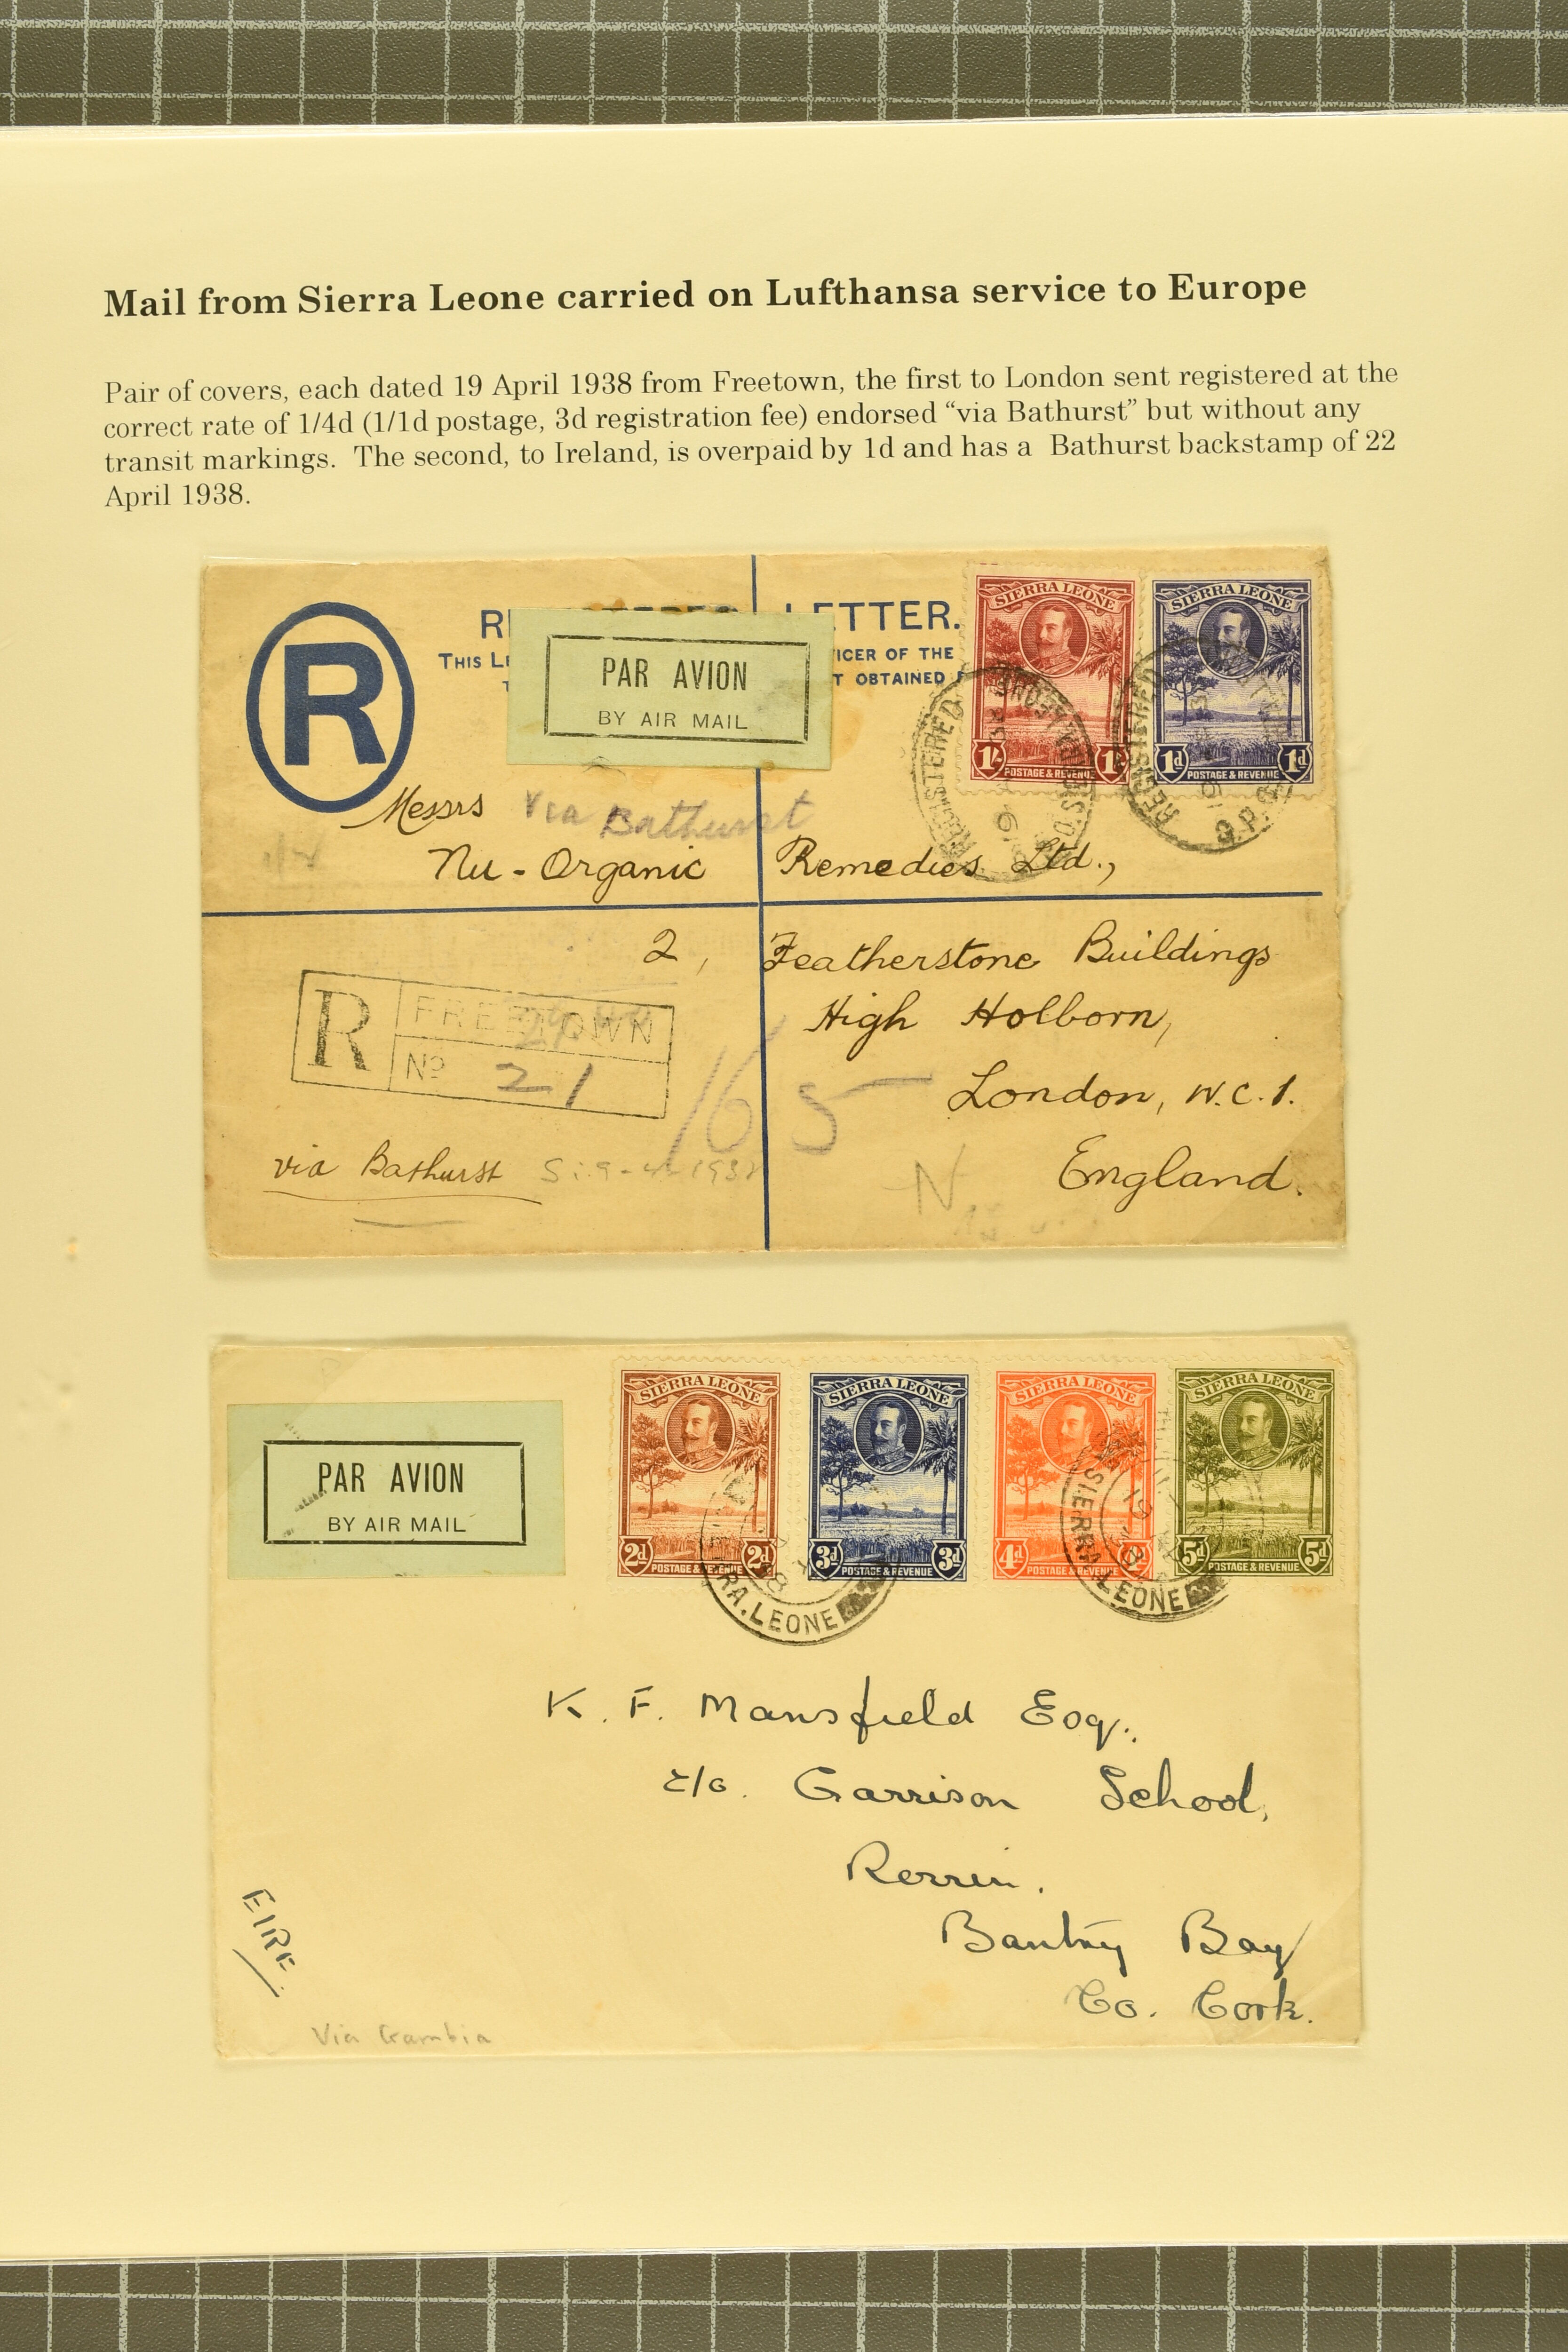 Mail from Sierra Leone carried on Lufthansa service to Europe
Pair of covers, each dated 19 April 1938 from Freetown, the first to London sent registered at the
correct rate of 1/4d (1/1d postage, 3d registration fee) endorsed “via Bathurst” but without any
transit markings. The second, to Ireland, is overpaid by 1d and has a Bathurst backstamp of 22
April 1938.
R
LETTER.
THIS
ICER OF THE
T OBTAINED
PAR AVION
BY AIR MAIL
SIERRA LEONE
1/- 1/-
POSTAGE & REVENUE
SIERRA LEONE
1d 1d
POSTAGE & REVENUE
REGISTERED
REGISTERED G.P.O.
Messrs
Via Bathurst
Nu-Organic Remedies Ltd.,
2, Featherstone Buildings
High Holborn,
London, W.C.1.
England.
R FREETOWN
No 21
165
via Bathurst
N
PAR AVION
BY AIR MAIL
SIERRA LEONE
2d 2d
POSTAGE & REVENUE
SIERRA LEONE
3d 3d
POSTAGE & REVENUE
SIERRA LEONE
4d 4d
POSTAGE & REVENUE
SIERRA LEONE
5d 5d
POSTAGE & REVENUE
RA.LEONE
SIERRA.LEONE
K. F. Mansfield Esq.
c/o. Garrison School,
Rerrin.
Bantry Bay
Co. Cork.
EIRE
Via Gambia